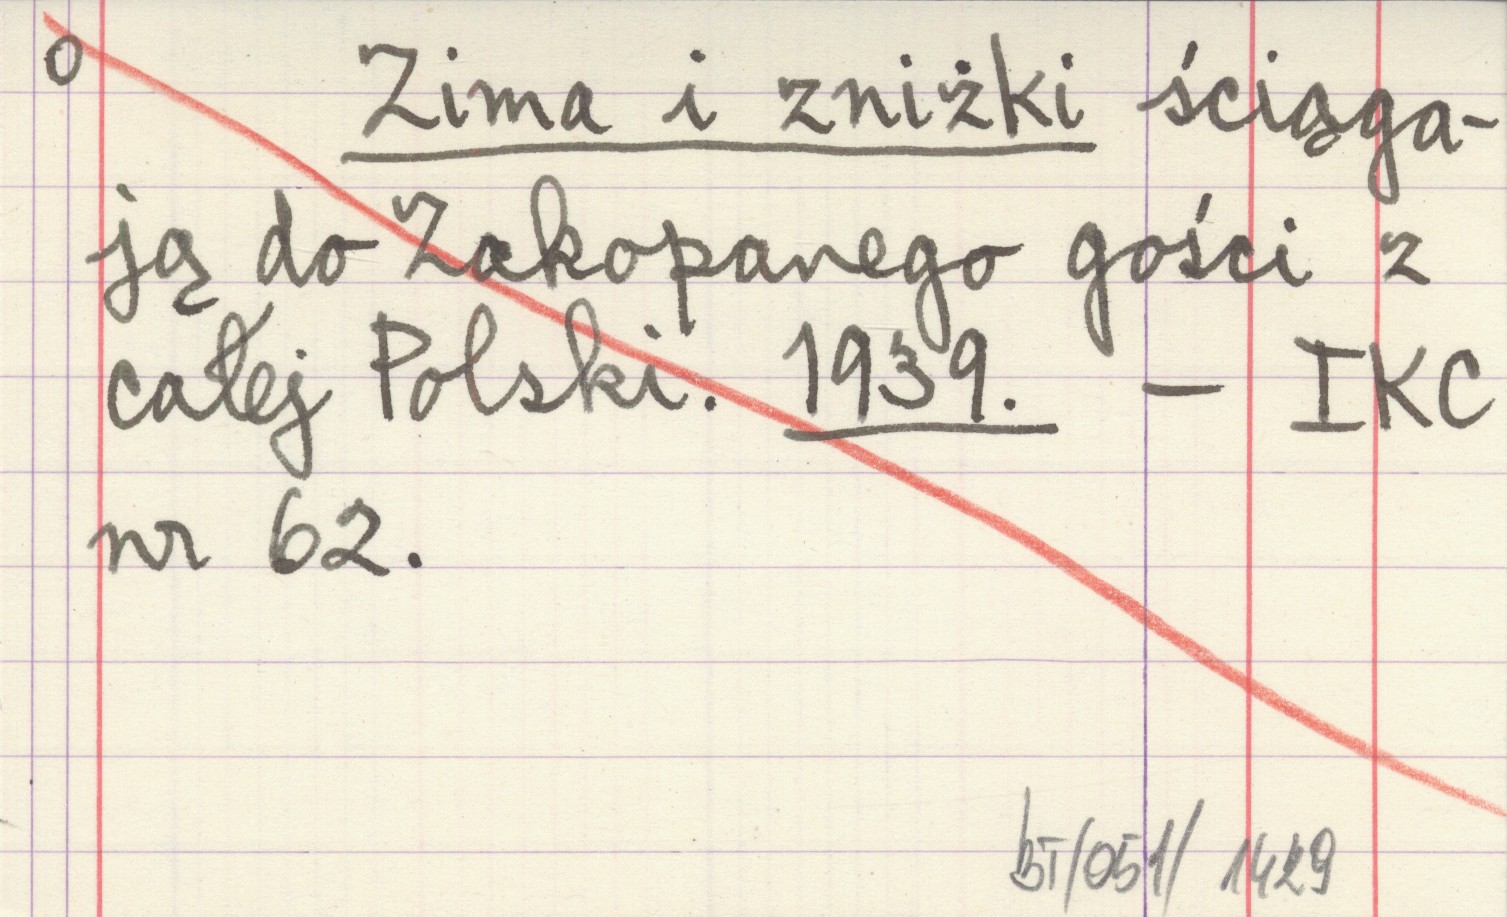 o Zima i zniżki ściąga-
ją do Zakopanego gości z
całej Polski. 1939. — IKC
nr 62.
BT/051/ 1429